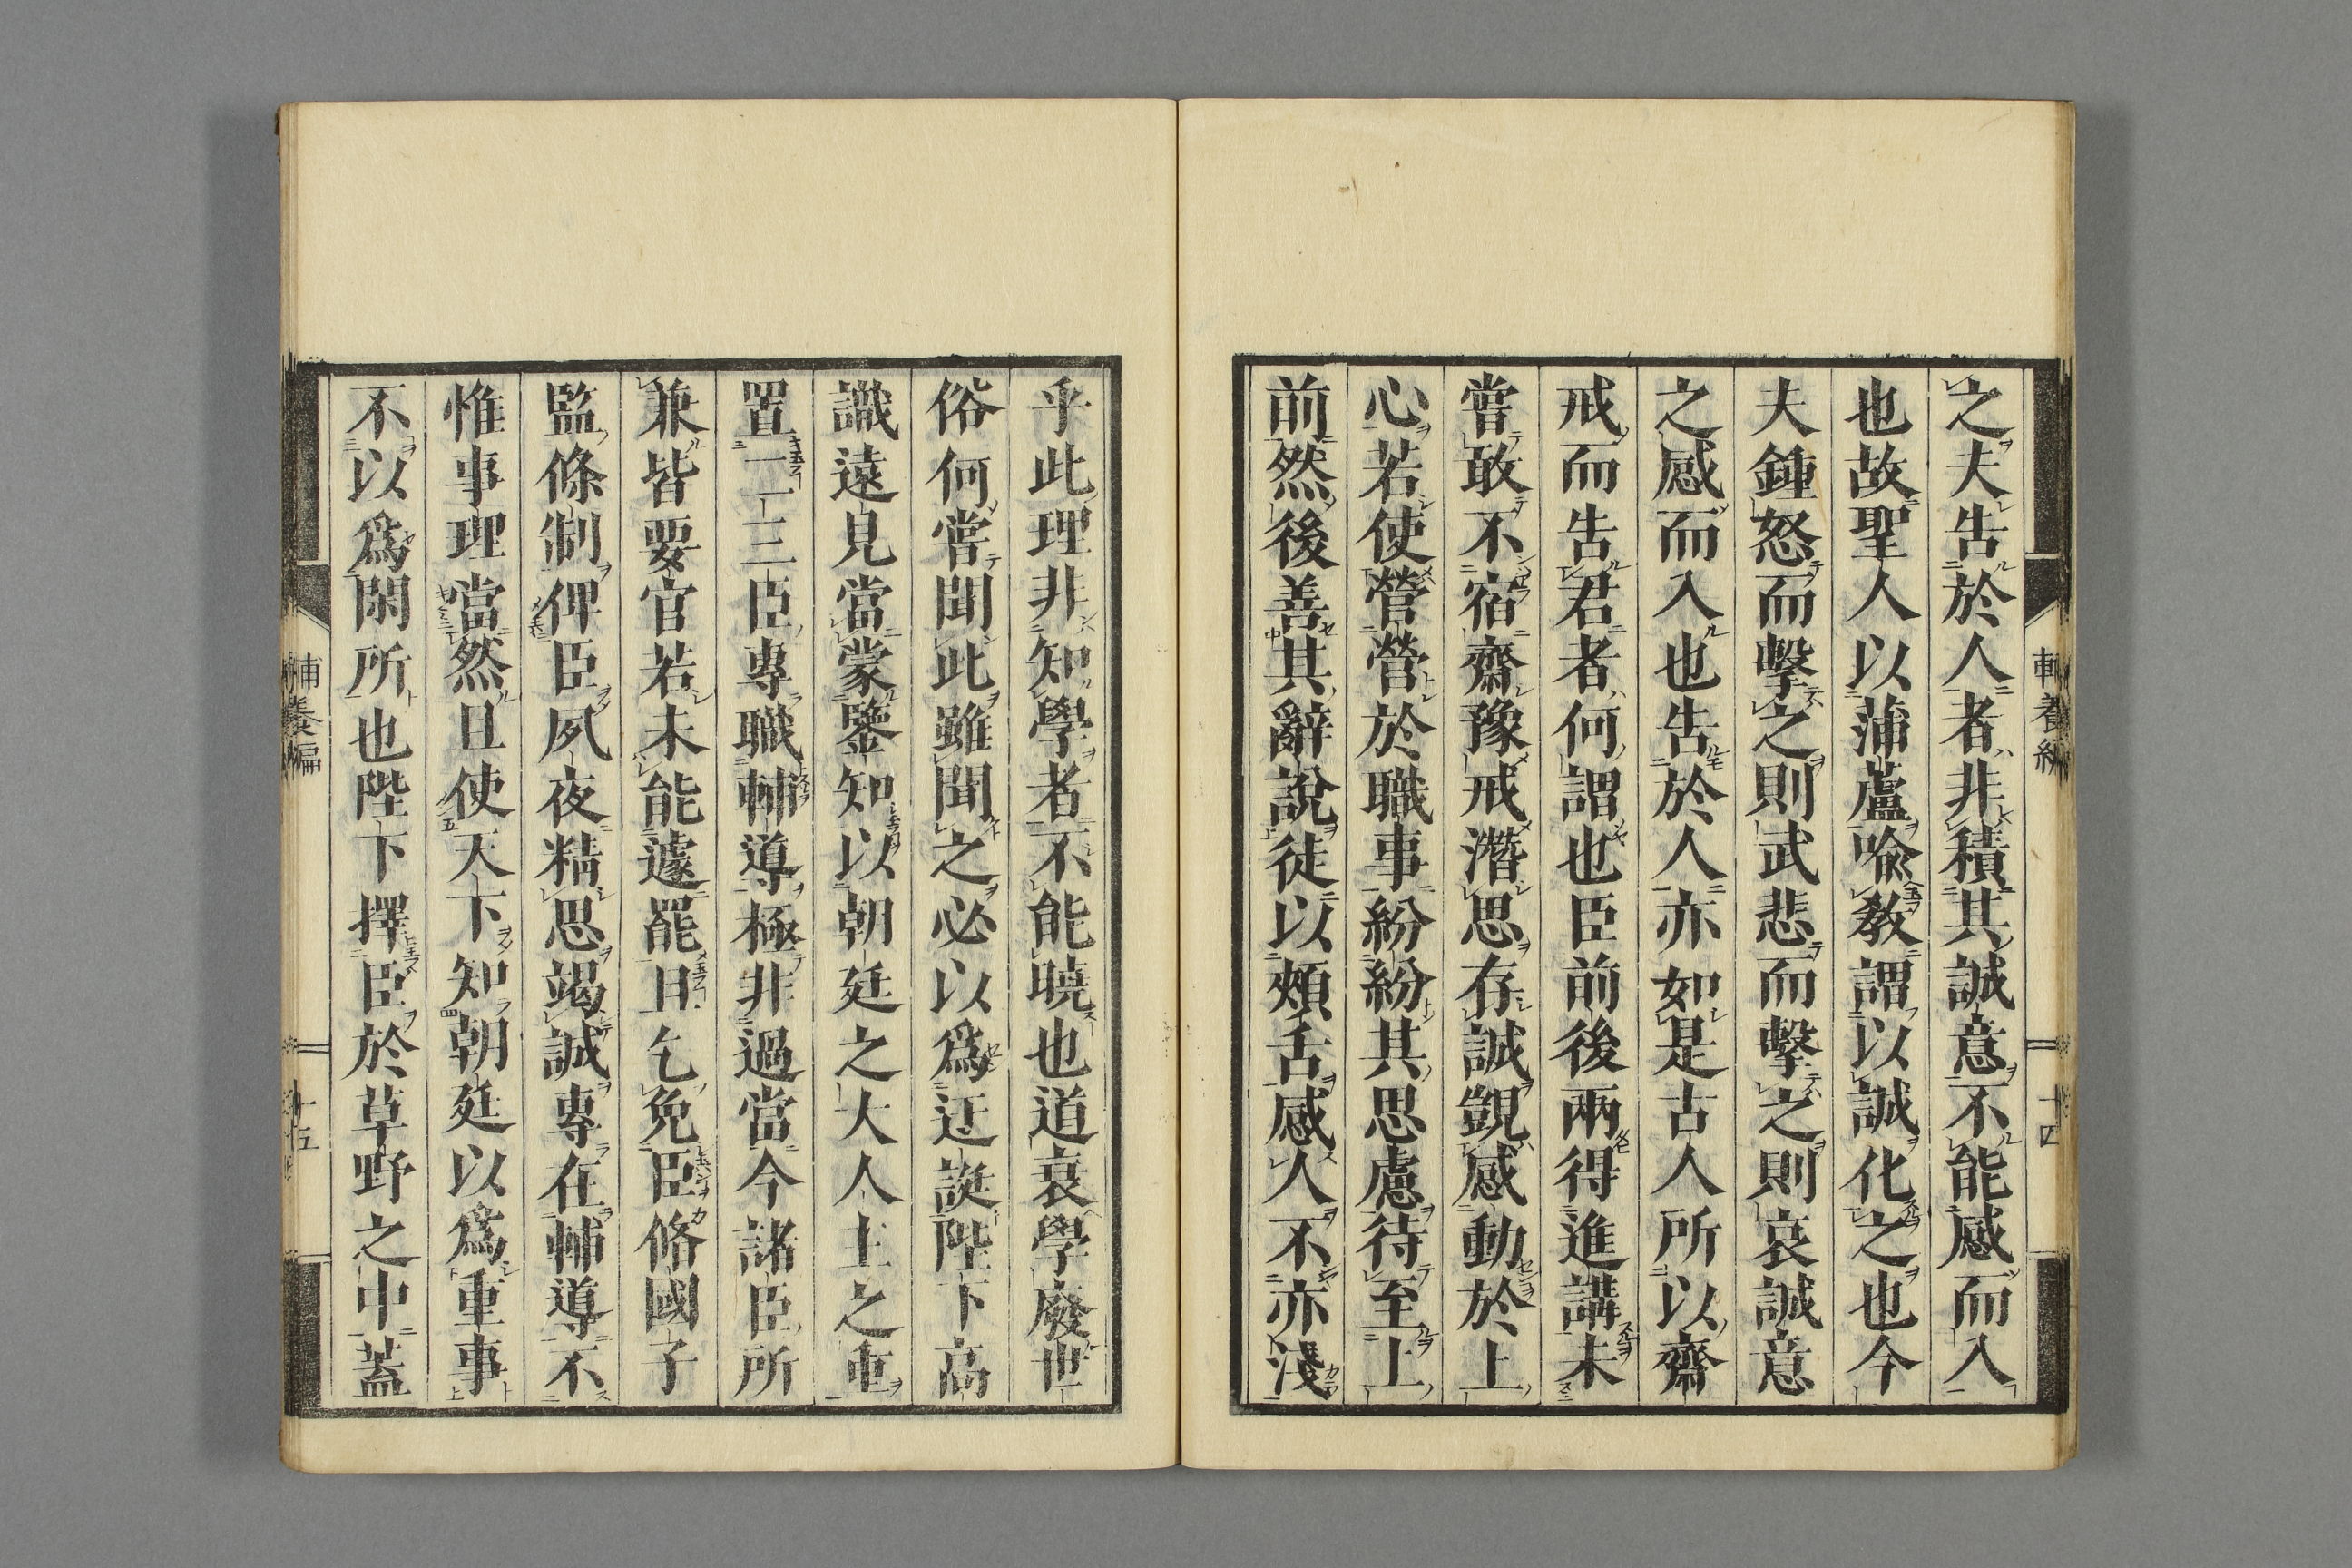 之夫告於人者非積其誠意不能感而入
也故聖人以蒲蘆喩敎謂以誠化之也今
夫鍾怒而擊之則武悲而擊之則哀誠意
之感而入也告於人亦如是古人所以齋
戒而告君者何謂也臣前後兩得進講未
嘗敢不宿齋豫戒潛思存誠覬感動於上
心若使營營於職事紛紛其思慮待至上
前然後善其辭說徒以頰舌感人不亦淺
乎此理非知學者不能曉也道衰學廢世
俗何嘗聞此雖聞之必以爲迂誕陛下高
識遠見當蒙鑒知以朝廷之大人主之重
置二三臣專職輔導極非過當今諸臣所
兼皆要官若未能遽罷且乞免臣脩國子
監條制俾臣夙夜精思竭誠專在輔導不
惟事理當然且使天下知朝廷以爲重事
不以爲閑所也陛下擇臣於草野之中蓋
輔養編
十五